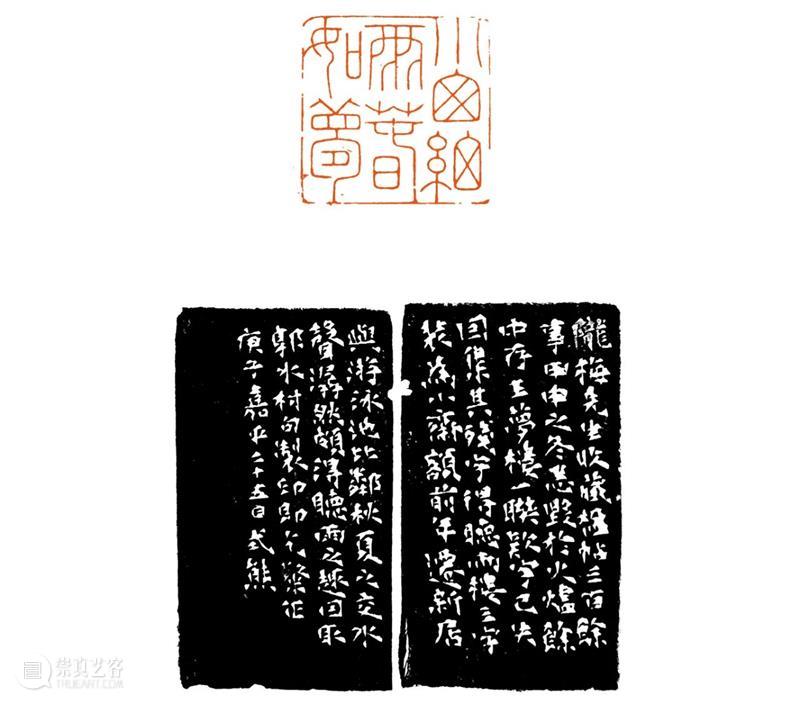 小窗細
雨春
如夢
隴梅先生收藏楹帖三百餘
事甲申之冬悉毀於火燼餘
中存王夢樓一聯款字已失
因其殘字得聽雨樓三字
裝為小齋額前年遷新居
與游泳池比鄰秋夏之交水
聲潺然頗得聽雨之趣因取
郭水村句製印即乞正
庚子嘉平二十五日式熊
崇真艺客
TRUEART.COM